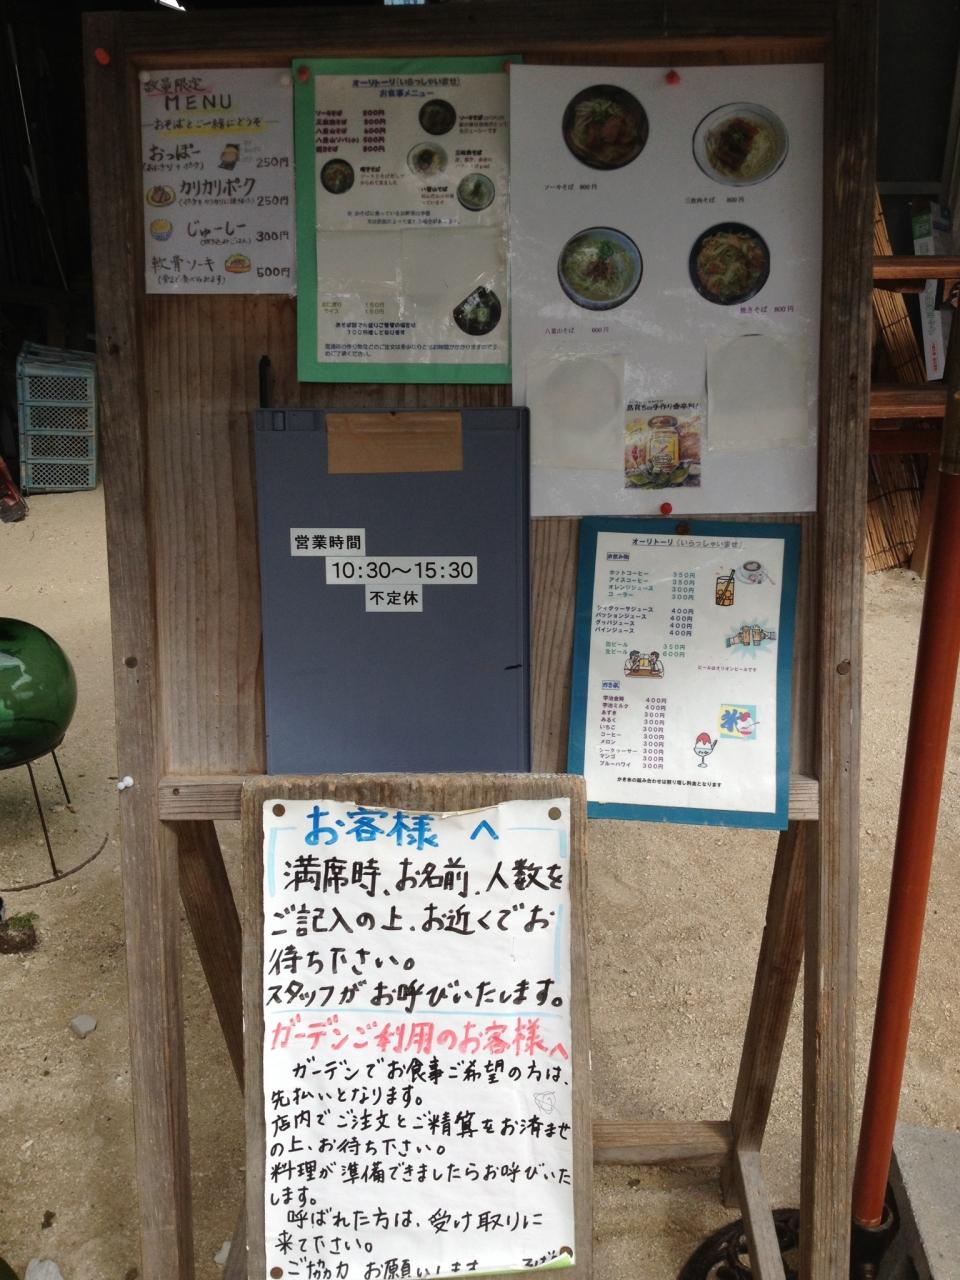 数量限定
MENU
おそばとご一緒にどうぞ
おっぽー
250円
カリカリポーク
250円
じゅーしー
(炊き込みごはん)
300円
軟骨ソーキ
500円
オーリトーリ(いらっしゃいませ)
お食事メニュー
ソーキそば 800円
三枚肉そば 800円
八重山そば 600円
焼きそば 800円
ソーキそば
三枚肉そば
焼きそば
八重山そば
150円
ライス 150円
ソーキそば 800円
三枚肉そば 800円
八重山そば 600円
焼きそば 800円
営業時間
10:30〜15:30
不定休
オーリトーリ(いらっしゃいませ)
お飲み物
ホットコーヒー 350円
アイスコーヒー 350円
オレンジジュース 300円
コーラー 300円
シィクァーサジュース 400円
パッションジュース 400円
グァバジュース 400円
パインジュース 400円
缶ビール 350円
生ビール 600円
ビールはオリオンビールです
かき氷
宇治金時 400円
宇治ミルク 400円
あずき 300円
みるく 300円
いちご 300円
コーヒー 300円
メロン 300円
シークァーサー 300円
マンゴ 300円
ブルーハワイ 300円
氷
かき氷の組み合わせは割り増し料金となります
お客様へ
満席時、お名前、人数を
ご記入の上、お近くでお
待ち下さい。
スタッフがお呼びいたします。
ガーデンご利用のお客様へ
ガーデンでお食事ご希望の方は、
先払いとなります。
店内でご注文とご精算をお済ませ
の上、お待ち下さい。
料理が準備できましたらお呼びいた
します。
呼ばれた方は、受け取りに
来て下さい。
ご協力お願いします